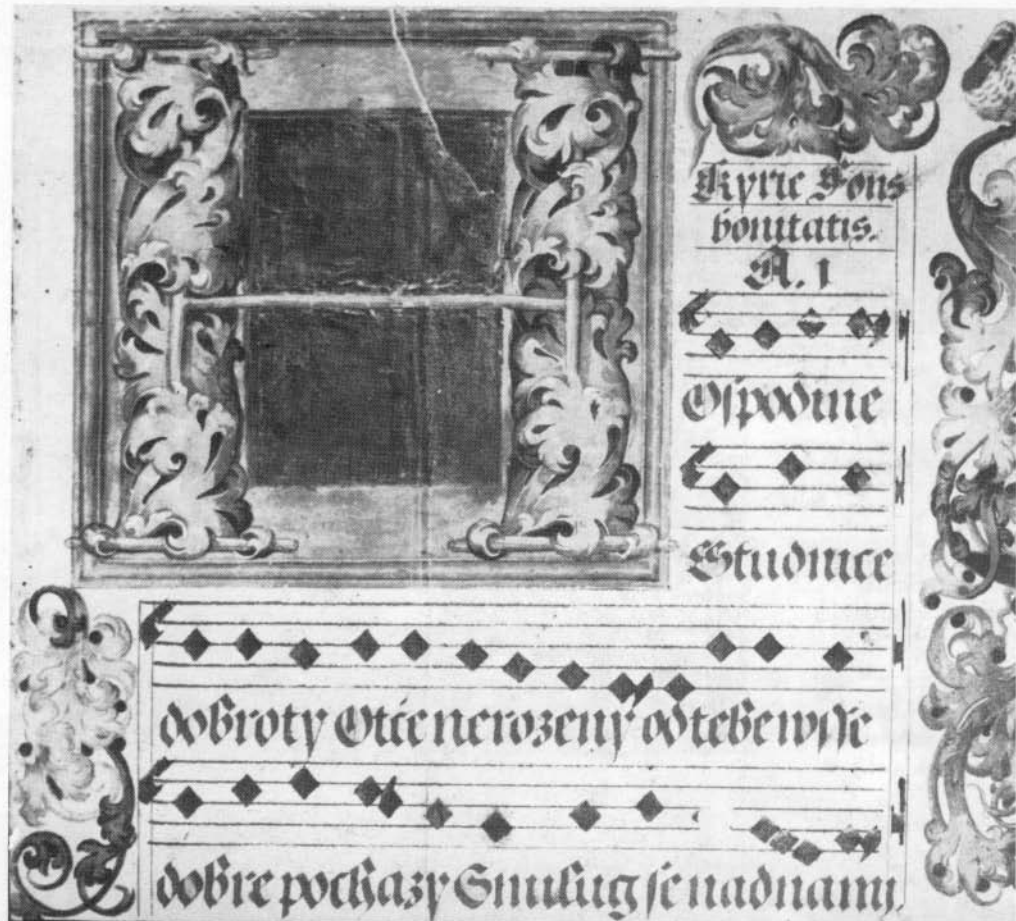 Kyrie Fons
bonitatis.
A. 1
Ospodine
Studnice
dobroty Otče nerozeny od tebe wsse
dobre pochazy Smilug se nad nami.